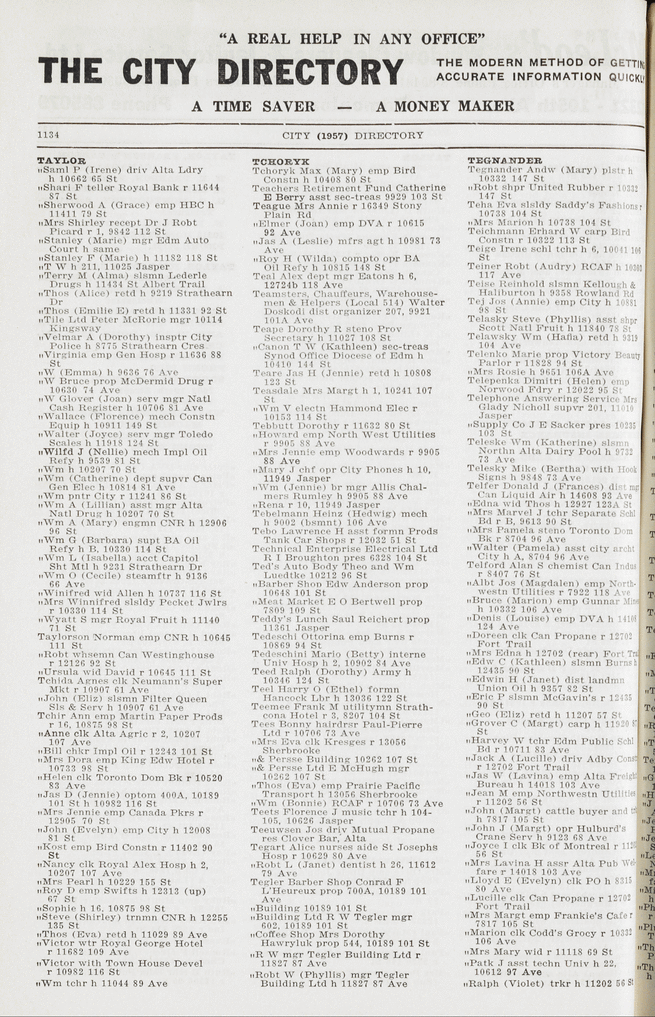 "A REAL HELP IN ANY OFFICE"
THE CITY DIRECTORY
THE MODERN METHOD OF GETTIN
ACCURATE INFORMATION QUICKL
A TIME SAVER — A MONEY MAKER
1134
CITY (1957) DIRECTORY
TAYLOR
"Saml P (Irene) driv Alta Ldry
h 10662 65 St
"Shari F teller Royal Bank r 11644
87 St
"Sherwood A (Grace) emp HBC h
11411 79 St
"Mrs Shirley recept Dr J Robt
Picard r 1, 9842 112 St
"Stanley (Marie) mgr Edm Auto
Court h same
"Stanley F (Marie) h 11182 118 St
"T W h 211, 11025 Jasper
"Terry M (Alma) slsmn Lederle
Drugs h 11434 St Albert Trail
"Thos (Alice) retd h 9219 Strathearn
Dr
"Thos (Emilie E) retd h 11331 92 St
"Tile Ltd Peter McRorie mgr 10114
Kingsway
"Velmar A (Dorothy) insptr City
Police h 8775 Strathearn Cres
"Virginia emp Gen Hosp r 11636 88
St
"W (Emma) h 9636 76 Ave
"W Bruce prop McDermid Drug r
10630 74 Ave
"W Glover (Joan) serv mgr Natl
Cash Register h 10706 81 Ave
"Wallace (Florence) mech Constn
Equip h 10911 149 St
"Walter (Joyce) serv mgr Toledo
Scales h 11918 124 St
"Wilfd J (Nellie) mech Impl Oil
Refy h 9539 81 St
"Wm h 10207 70 St
"Wm (Catherine) dept supvr Can
Gen Elech h 10814 81 Ave
"Wm pntr City r 11241 86 St
"Wm A (Lillian) asst mgr Alta
Natl Drug h 10207 70 St
"Wm A (Mary) engmn CNR h 12906
96 St
"Wm G (Barbara) supt BA Oil
Refy h B, 10330 114 St
"Wm L (Isabella) acct Capitol
Sht Mtl h 9231 Strathearn Dr
"Wm O (Cecile) steamftr h 9136
66 Ave
"Winifred wid Allen h 10737 116 St
"Mrs Winnifred slsldy Pecket Jwlrs
r 10330 114 St
"Wyatt S mgr Royal Fruit h 11140
71 St
Taylorson Norman emp CNR h 10645
111 St
"Robt whsemn Can Westinghouse
r 12126 92 St
"Ursula wid David r 10645 111 St
Tchida Agnes clk Neumann's Super
Mkt r 10907 61 Ave
"John (Eliz) slsmn Filter Queen
Sls & Serv h 10907 61 Ave
Tchir Ann emp Martin Paper Prods
r 16, 10875 98 St
"Anne clk Alta Agric r 2, 10207
107 Ave
"Bill chkr Impl Oil r 12243 101 St
"Mrs Dora emp King Edw Hotel r
10733 98 St
"Helen clk Toronto Dom Bk r 10520
83 Ave
"Jas D (Jennie) optom 400A, 10189
101 St h 10982 116 St
"Mrs Jennie emp Canada Pkrs r
12905 70 St
"John (Evelyn) emp City h 12008
81 St
"Kost emp Bird Constn r 11402 90
St
"Nancy clk Royal Alex Hosp h 2,
10207 107 Ave
"Mrs Pearl h 10229 155 St
"Roy D emp Swifts h 12313 (up)
67 St
"Sophie h 16, 10875 98 St
"Steve (Shirley) trnmn CNR h 12255
135 St
"Thos (Eva) retd h 11029 89 Ave
"Victor wtr Royal George Hotel
r 11682 109 Ave
"Victor with Town House Devel
r 10982 116 St
"Wm tchr h 11044 89 Ave
TCHORYK
Tchoryk Max (Mary) emp Bird
Constn h 10408 80 St
Teachers Retirement Fund Catherine
E Berry asst sec-treas 9929 103 St
Teague Mrs Annie r 16349 Stony
Plain Rd
"Elmer (Joan) emp DVA r 10615
92 Ave
"Jas A (Leslie) mfrs agt h 10981 73
Ave
"Roy H (Wilda) compto opr BA
Oil Refy r 10815 148 St
Teal Alex dept mgr Eatons h 6,
12724b 118 Ave
Teamsters, Chauffeurs, Warehouse-
men & Helpers (Local 514) Walter
Doskodi dist organizer 207, 9921
101A Ave
Teape Dorothy R steno Prov
Secretary h 11027 108 St
"Canon T W (Kathleen) sec-treas
Synod Office Diocese of Edm h
10410 144 St
Teare Jas H (Jennie) retd h 10808
123 St
Teasdale Mrs Margt h 1, 10241 107
St
"Wm V electn Hammond Elec r
10153 114 St
Tebbutt Dorothy r 11632 80 St
"Howard emp North West Utilities
r 9905 88 Ave
"Mrs Jennie emp Woodwards r 9905
88 Ave
"Mary J chf opr City Phones h 10,
11949 Jasper
"Wm (Jennie) br mgr Allis Chal-
mers Rumley h 9905 88 Ave
"Rena r 10, 11949 Jasper
Tebelmann Heinz (Hedwig) mech
h 9002 (bsmnt) 106 Ave
Tebo Lawrence H asst formn Prods
Tank Car Shops r 12032 51 St
Technical Enterprise Electrical Ltd
R I Broughton pres 6328 104 St
Ted's Auto Body Theo and Wm
Luedtke 10212 96 St
"Barber Shop Edw Anderson prop
10648 101 St
"Meat Market E O Bertwell prop
7809 109 St
Teddy's Lunch Saul Reichert prop
11361 Jasper
Tedeschi Ottorina emp Burns r
10869 94 St
Tedeschini Mario (Betty) interne
Univ Hosp h 2, 10902 84 Ave
Teed Ralph (Dorothy) Army h
10346 124 St
Teel Harry O (Ethel) formn
Hancock Lbr h 13036 122 St
Teemee Frank M utilitymn Strath-
cona Hotel r 3, 8207 104 St
Tees Bonny hairdrsr Paul-Pierre
Ltd r 10706 73 Ave
"Mrs Eva clk Kresges r 13056
Sherbrooke
"& Persse Building 10262 107 St
"& Persse Ltd E McHugh mgr
10262 107 St
"Thos (Eva) emp Prairie Pacific
Transport h 13056 Sherbrooke
"Wm (Bonnie) RCAF r 10706 73 Ave
Teets Florence J music tchr h 104-
105, 10626 Jasper
Teeuwsen Jos driv Mutual Propane
res Clover Bar, Alta
Tegart Alice nurses aide St Josephs
Hosp r 10629 80 Ave
"Robt L (Janet) dentist h 26, 11612
79 Ave
Tegler Barber Shop Conrad F
L'Heureux prop 700A, 10189 101
Ave
"Building 10189 101 St
"Building Ltd R W Tegler mgr
602, 10189 101 St
"Coffee Shop Mrs Dorothy
Hawryluk prop 544, 10189 101 St
"R W mgr Tegler Building Ltd r
11827 87 Ave
"Robt W (Phyllis) mgr Tegler
Building Ltd h 11827 87 Ave
TEGNANDER
Tegnander Andw (Mary) plstr h
10332 147 St
"Robt shpr United Rubber r 10332
147 St
Teha Eva slsldy Saddy's Fashions r
10738 104 St
"Mrs Marion h 10738 104 St
Teichmann Erhard W carp Bird
Constn r 10322 113 St
Teige Irene schl tchr h 6, 10041 106
St
Teiner Robt (Audry) RCAF h
117 Ave
Teise Reinhold slsmn Kellough &
Haliburton h 9358 Rowland Rd
Tej Jos (Annie) emp City h
98 St
Telasky Steve (Phyllis) asst shpr
Scott Natl Fruit h 11840 78 St
Telawsky Wm (Hafia) retd h 9319
104 Ave
Telenko Marie prop Victory Beauty
Parlor r 11828 94 St
"Mrs Rosie h 9651 106A Ave
Telepenka Dimitri (Helen) emp
Norwood Fdry r 12022 95 St
Telephone Answering Service Mrs
Glady Nicholl supvr 201, 11010
Jasper
"Supply Co J E Sacker pres
103 St
Teleske Wm (Katherine) slsmn
Northn Alta Dairy Pool h 9732
73 Ave
Telesky Mike (Bertha) with Hook
Signs h 9848 73 Ave
Telfer Donald J (Frances) dist mg
Can Liquid Air h 14608 93 Ave
"Edna wid Thos h 12927 123A St
"Mrs Marvel J tchr Separate Schl
Bd r B, 9613 90 St
"Mrs Pamela steno Toronto Dom
Bk r 8704 96 Ave
"Walter (Pamela) asst city archt
City h A, 8704 96 Ave
Telford Alan S chemist Can Indus
r 8407 76 St
"Albt Jos (Magdalen) emp North-
westn Utilities r 7922 118 Ave
"Bruce (Marion) emp Gunnar Mine
h 10332 106 Ave
"Denis (Louise) emp DVA h
124 Ave
"Doreen clk Can Propane r 12702
Fort Trail
"Mrs Edna h 12702 (rear) Fort Trai
"Edw C (Kathleen) slsmn Burns h
12435 90 St
"Edwin H (Janet) dist landmn
Union Oil h 9357 82 St
"Eric P slsmn McGavin's r 12435
90 St
"Geo (Eliz) retd h 11207 57 St
"Grover C (Margt) carp h 11920
St
"Harvey W tchr Edm Public Schl
Bd r 10711 83 Ave
"Jack A (Lucille) driv Adby Const
r 12702 Fort Trail
"Jas W (Lavina) emp Alta Freigh
Bureau h 14018 103 Ave
"Jean M emp Northwestn Utilities
r 11202 56 St
"John (Margt) cattle buyer and
h 7817 105 St
"John J (Margt) opr Hulburd's
Crane Serv h 9123 68 Ave
"Joyce I clk Bk of Montreal r
56 St
"Mrs Lavina H assr Alta Pub Wel
fare r 14018 103 Ave
"Lloyd E (Evelyn) clk PO h 8315
80 Ave
"Lucille clk Can Propane r 12702
Fort Trail
"Mrs Margt emp Frankie's Cafe r
7817 105 St
"Marion clk Codd's Grocy r 10332
106 Ave
"Mrs Mary wid r 11118 69 St
"Patk J asst techn Univ h 22,
10612 97 Ave
"Ralph (Violet) trkr h 11202 56 St